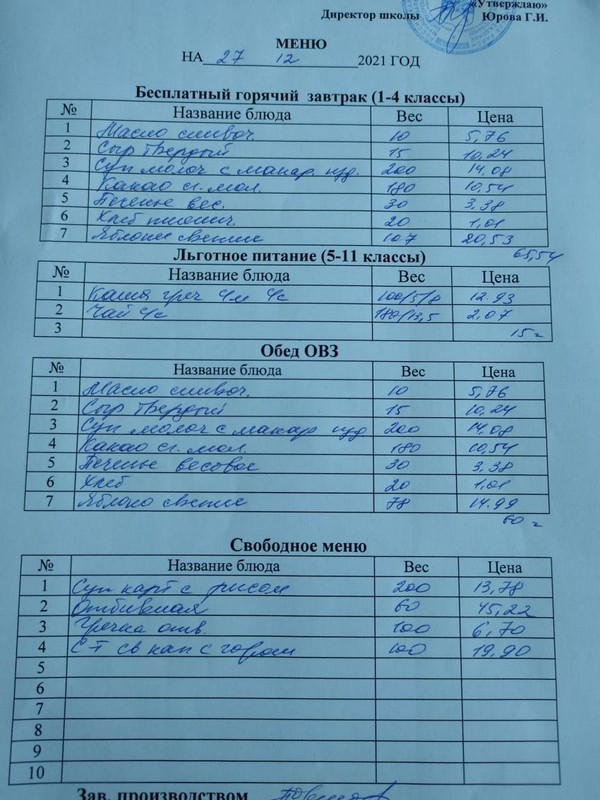 «Утверждаю»
Директор школы Юрова Г.И.
МЕНЮ
НА 27 12 2021 ГОД
Бесплатный горячий завтрак (1-4 классы)
№ Название блюда Вес Цена
1 Масло сливоч. 10 5,76
2 Сыр твердый 15 10,24
3 Суп молоч с макар. изд. 200 14,08
4 Какао сг. мол. 180 10,54
5 Печенье вес. 30 3,38
6 Хлеб пшенич. 20 1,01
7 Яблоки свежие 107 20,53
65,54
Льготное питание (5-11 классы)
№ Название блюда Вес Цена
1 Каша греч 12.93
2 Чай 180/13,5 2,07
3 15
Обед ОВЗ
№ Название блюда Вес Цена
1 Масло сливоч. 10 5,76
2 Сыр твердый 15 10,24
3 Суп молоч с макар изд 200 14,08
4 Какао сг. мол. 180 10,54
5 Печенье весовое 30 3,38
6 Хлеб 20 1.01
7 Яблоко свежие 78 14.99
60
Свободное меню
№ Название блюда Вес Цена
1 Суп карт с рисом 200 13,78
2 Отбивная 60 45,22
3 Гречка отв. 100 6,70
4 С-т св кап с горош 100 19,90
5
6
7
8
9
10
Зав. производством